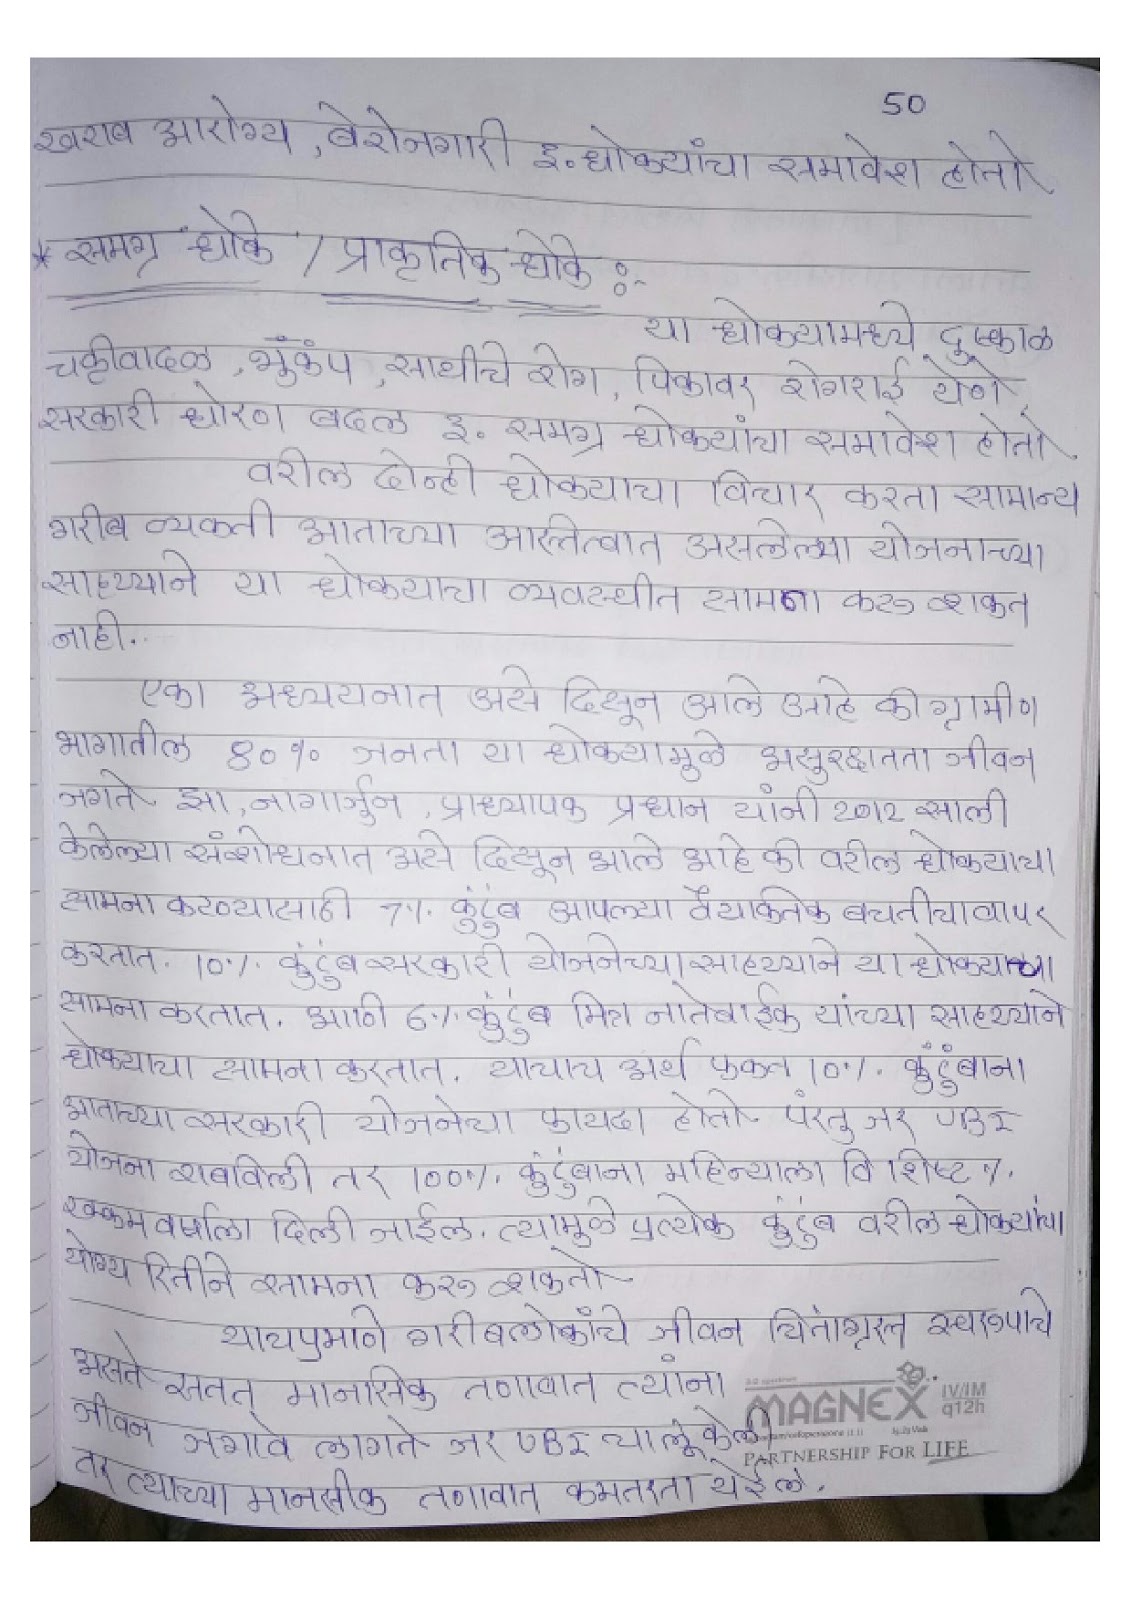 50
खराब आरोग्य, बेरोजगारी इ. धोक्यांचा समावेश होतो
* समग्र धोके / प्राकृतिक धोके :-
या धोक्यामध्ये दुष्काळ
चक्रीवादळ, भुकंप, साथीचे रोग, पिकावर रोगराई येणे,
सरकारी धोरण बदल इ. समग्र धोक्यांचा समावेश होतो
वरील दोन्ही धोक्याचा विचार करता सामान्य
गरीब व्यक्ती आताच्या अस्तित्वात असलेल्या योजनाच्या
साहय्याने या धोक्याचा व्यवस्थीत सामना करू शकत
नाही.
एका अध्ययनात असे दिसून आले आहे की ग्रामीण
भागातील 80% जनता या धोक्यामुळे असुरक्षातता जीवन
जगते झा, नागार्जुन, प्राध्यापक प्रधान यांनी 2012 साली
केलेल्या संशोधनात असे दिसून आले आहे की वरील धोक्याचा
सामना करण्यासाठी 7% कुंटुंब आपल्या वैयक्तिक बचतीचा वापर
करतात. 10%. कुंटुंब सरकारी योजनेच्या साहय्याने या धोक्याचा
सामना करतात. आणी 6% कुंटुंब मित्र नातेवाईक यांच्या साहय्याने
धोक्याचा सामना करतात. याचाच अर्थ फक्त 10%. कुंटुंबाना
आताच्या सरकारी योजनेचा फायदा होतो परंतु जर UBI
योजना राबविली तर 100%. कुंटुंबाना महिन्याला विशिष्ट %.
रक्कम वर्षाला दिली जाईल. त्यामुळे प्रत्येक कुंटुंब वरील धोक्यांचा
योग्य रितीने सामना करू शकतो
याचप्रमाणे गरीब लोकांचे जीवन चिंताग्रस्त स्वरूपाचे
असते सतत मानसिक तणावात त्यांना
जीवन जगावे लागते जर UBI चालू केली
तर त्याच्या मानसीक तणावात कमतरता येईल.
MAGNEX IV/IM
q12h
PARTNERSHIP FOR LIFE